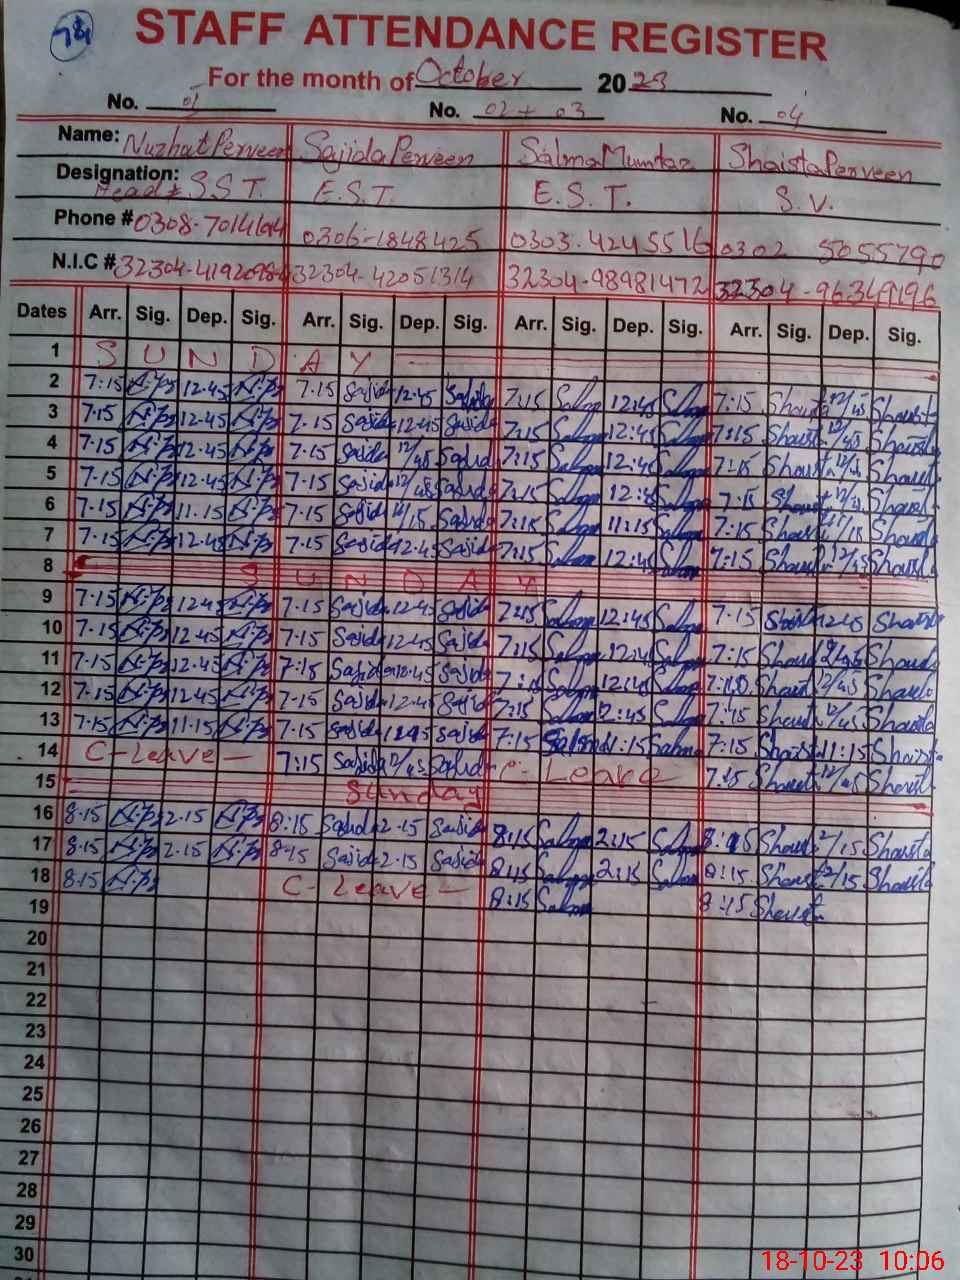 STAFF ATTENDANCE REGISTER
For the month of October 2023
No. 01 No. 02 + 03 No. 04
Name: Nuzhat Perveen Sajida Perveen Salma Mumtaz Shaista Perveen
Designation: Head # S.S.T. E.S.T. E.S.T. S.V.
Phone # 0306-1848425 0303-4245516 0302 5055790
N.I.C # 32304-42051314 32304-98981472 32304-96349196
Dates Arr. Sig. Dep. Sig. Arr. Sig. Dep. Sig. Arr. Sig. Dep. Sig. Arr. Sig. Dep. Sig.
1 SUNDAY
2 7:15 12.45 7.15 Sajida 12.45 Sajida 7:15 Salma 12:45 Salma 7:15 Shaista 12/45 Shaista
3 7.15 12.45 7.15 Sajida 12.45 Sajida 7:15 Salma 12:45 Salma 7:15 Shaista 12/45 Shaista
4 7.15 12.45 7.15 Sajida 12/45 Sajida 7:15 Salma 12:45 Salma 7:15 Shaista 12/45 Shaista
5 7.15 12.45 7.15 Sajida 12/45 Sajida 7:15 Salma 7:15 Shaista 12/45 Shaista
6 7.15 11.15 7.15 Sajida 11/15 Sajida 7:15 Salma 11:15 Salma 7:15 Shaista 11/15 Shaista
7 7.15 12.45 7.15 Sajida 12.45 Sajida 7:15 Salma 12:45 Salma 7:15 Shaista 12/45 Shaista
8 SUNDAY
9 7.15 12.45 7.15 Sajida 12.45 Sajida 7:15 Salma 12:45 Salma 7.15 Shaista Shaista
10 7.15 12.45 7.15 Sajida 12.45 Sajida 7:15 Salma 12:45 Salma 7:15 Shaista Shaista
11 7.15 12.45 7:15 Sajida 12.45 Sajida 7:15 Salma 12:45 Salma Shaista 12/45 Shaista
12 7.15 12.45 7.15 Sajida 12.45 Sajida 7:15 Salma 12:45 Salma 7:15 Shaista 12/45 Shaista
13 7.15 11.15 7.15 Sajida Sajida 7:15 Salma 11:15 Salma 7:15 Shaista 11:15 Shaista
14 C-Leave 7:15 Sajida 12/45 Sajida C-Leave 7:15 Shaista 12/45 Shaista
15 Sunday
16 8.15 2.15 8:15 Sajida 2.15 Sajida 8:15 Salma 2:15 Salma 8:15 Shaista 2/15 Shaista
17 8.15 2.15 8.15 Sajida 2.15 Sajida 8:15 Salma 2:15 Salma 8:15 Shaista 2/15 Shaista
18 8.15 C-Leave 8:15 Salma 8:15 Shaista
19
20
21
22
23
24
25
26
27
28
29
30
18-10-23 10:06